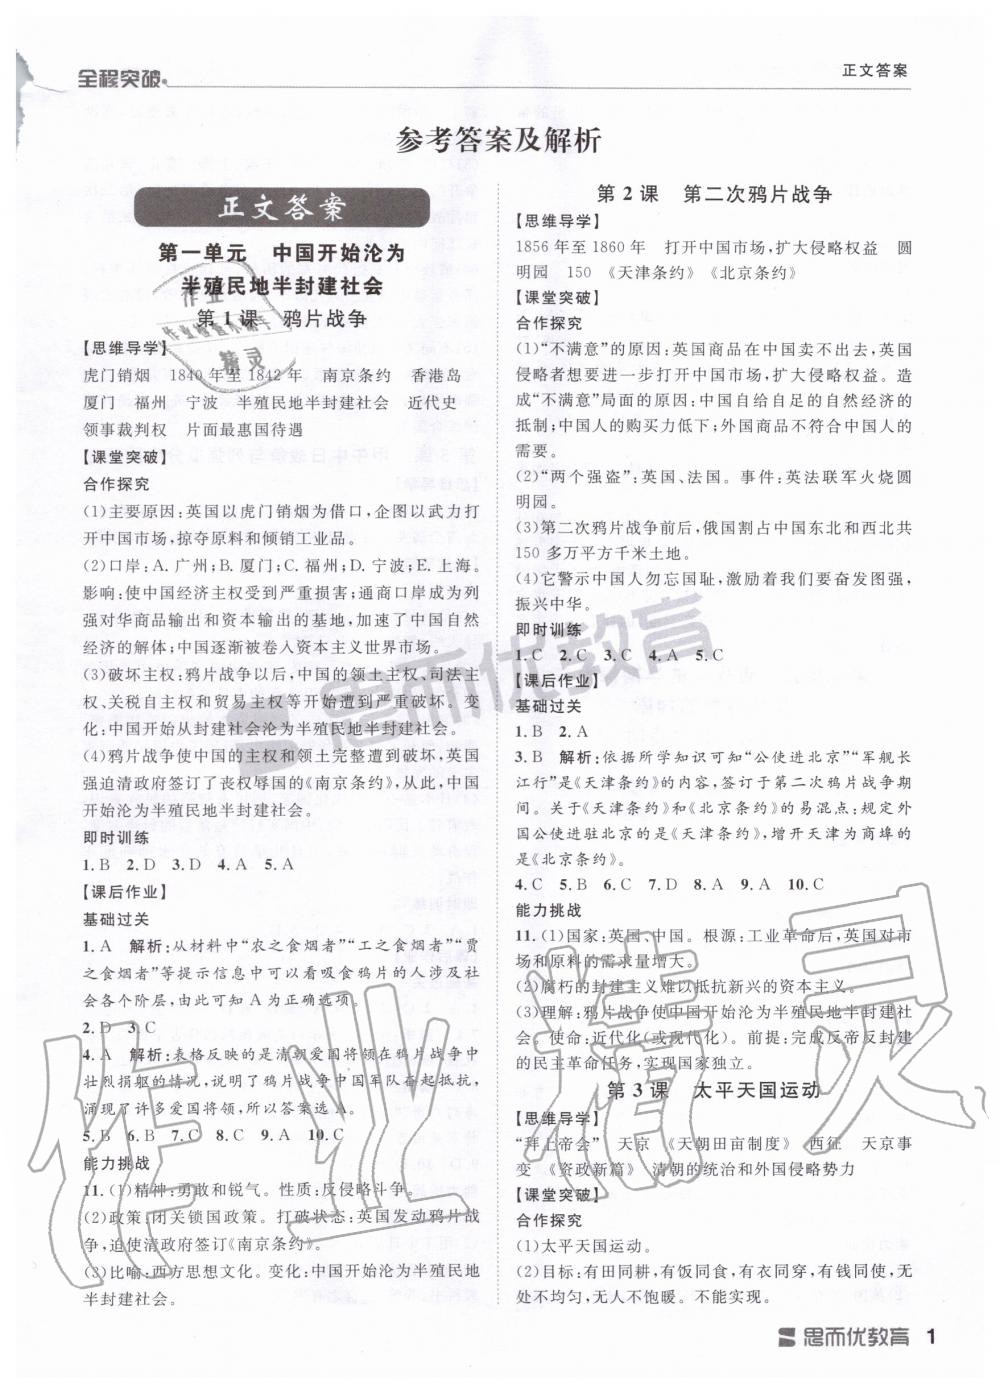 全程突破
正文答案
参考答案及解析
正文答案
第一单元 中国开始沦为
半殖民地半封建社会
第1课 鸦片战争
【思维导学】
虎门销烟 1840年至1842年 南京条约 香港岛
厦门 福州 宁波 半殖民地半封建社会 近代史
领事裁判权 片面最惠国待遇
【课堂突破】
合作探究
(1)主要原因:英国以虎门销烟为借口,企图以武力打
开中国市场,掠夺原料和倾销工业品。
(2)口岸:A.广州;B.厦门;C.福州;D.宁波;E.上海。
影响:使中国经济主权受到严重损害;通商口岸成为列
强对华商品输出和资本输出的基地,加速了中国自然
经济的解体;中国逐渐被卷入资本主义世界市场。
(3)破坏主权:鸦片战争以后,中国的领土主权、司法主
权、关税自主权和贸易主权等开始遭到严重破坏。变
化:中国开始从封建社会沦为半殖民地半封建社会。
(4)鸦片战争使中国的主权和领土完整遭到破坏,英国
强迫清政府签订了丧权辱国的《南京条约》,从此,中国
开始沦为半殖民地半封建社会。
即时训练
1.B 2.D 3.D 4.A 5.A
【课后作业】
基础过关
1.A 解析:从材料中“农之食烟者”“工之食烟者”“贾
之食烟者”等提示信息中可以看吸食鸦片的人涉及社
会各个阶层,由此可知A为正确选项。
2.D 3.C
4.A 解析:表格反映的是清朝爱国将领在鸦片战争中
壮烈捐躯的情况,说明了鸦片战争中国军队奋起抵抗,
涌现了许多爱国将领,所以答案选A。
5.B 6.B 7.C 8.C 9.A 10.C
能力挑战
11.(1)精神:勇敢和锐气。性质:反侵略斗争。
(2)政策:闭关锁国政策。打破状态:英国发动鸦片战
争,迫使清政府签订《南京条约》。
(3)比喻:西方思想文化。变化:中国开始沦为半殖民地
半封建社会。
第2课 第二次鸦片战争
【思维导学】
1856年至1860年 打开中国市场,扩大侵略权益 圆
明园 150 《天津条约》《北京条约》
【课堂突破】
合作探究
(1)“不满意”的原因:英国商品在中国卖不出去,英国
侵略者想要进一步打开中国市场,扩大侵略权益。造
成“不满意”局面的原因:中国自给自足的自然经济的
抵制;中国人的购买力低下;外国商品不符合中国人的
需要。
(2)“两个强盗”:英国、法国。事件:英法联军火烧圆
明园。
(3)第二次鸦片战争前后,俄国割占中国东北和西北共
150多万平方千米土地。
(4)它警示中国人勿忘国耻,激励着我们要奋发图强,
振兴中华。
即时训练
1.C 2.C 3.C 4.A 5.C
【课后作业】
基础过关
1.B 2.A
3.B 解析:依据所学知识可知“公使进北京”“军舰长
江行”是《天津条约》的内容,签订于第二次鸦片战争期
间。关于《天津条约》和《北京条约》的易混点:规定外
国公使进驻北京的是《天津条约》,增开天津为商埠的
是《北京条约》。
4.C 5.B 6.C 7.D 8.A 9.A 10.C
能力挑战
11.(1)国家:英国、中国。根源:工业革命后,英国对市
场和原料的需求量增大。
(2)腐朽的封建主义难以抵抗新兴的资本主义。
(3)理解:鸦片战争使中国开始沦为半殖民地半封建社
会。使命:近代化(或现代化)。前提:完成反帝反封建
的民主革命任务,实现国家独立。
第3课 太平天国运动
【思维导学】
“拜上帝会” 天京 《天朝田亩制度》 西征 天京事
变 《资政新篇》 清朝的统治和外国侵略势力
【课堂突破】
合作探究
(1)太平天国运动。
(2)目标:有田同耕,有饭同食,有衣同穿,有钱同使,无
处不均匀,无人不饱暖。不能实现。
思而优教育 1
思而优教育
作业精灵
作业检查小帮手
作业
精灵